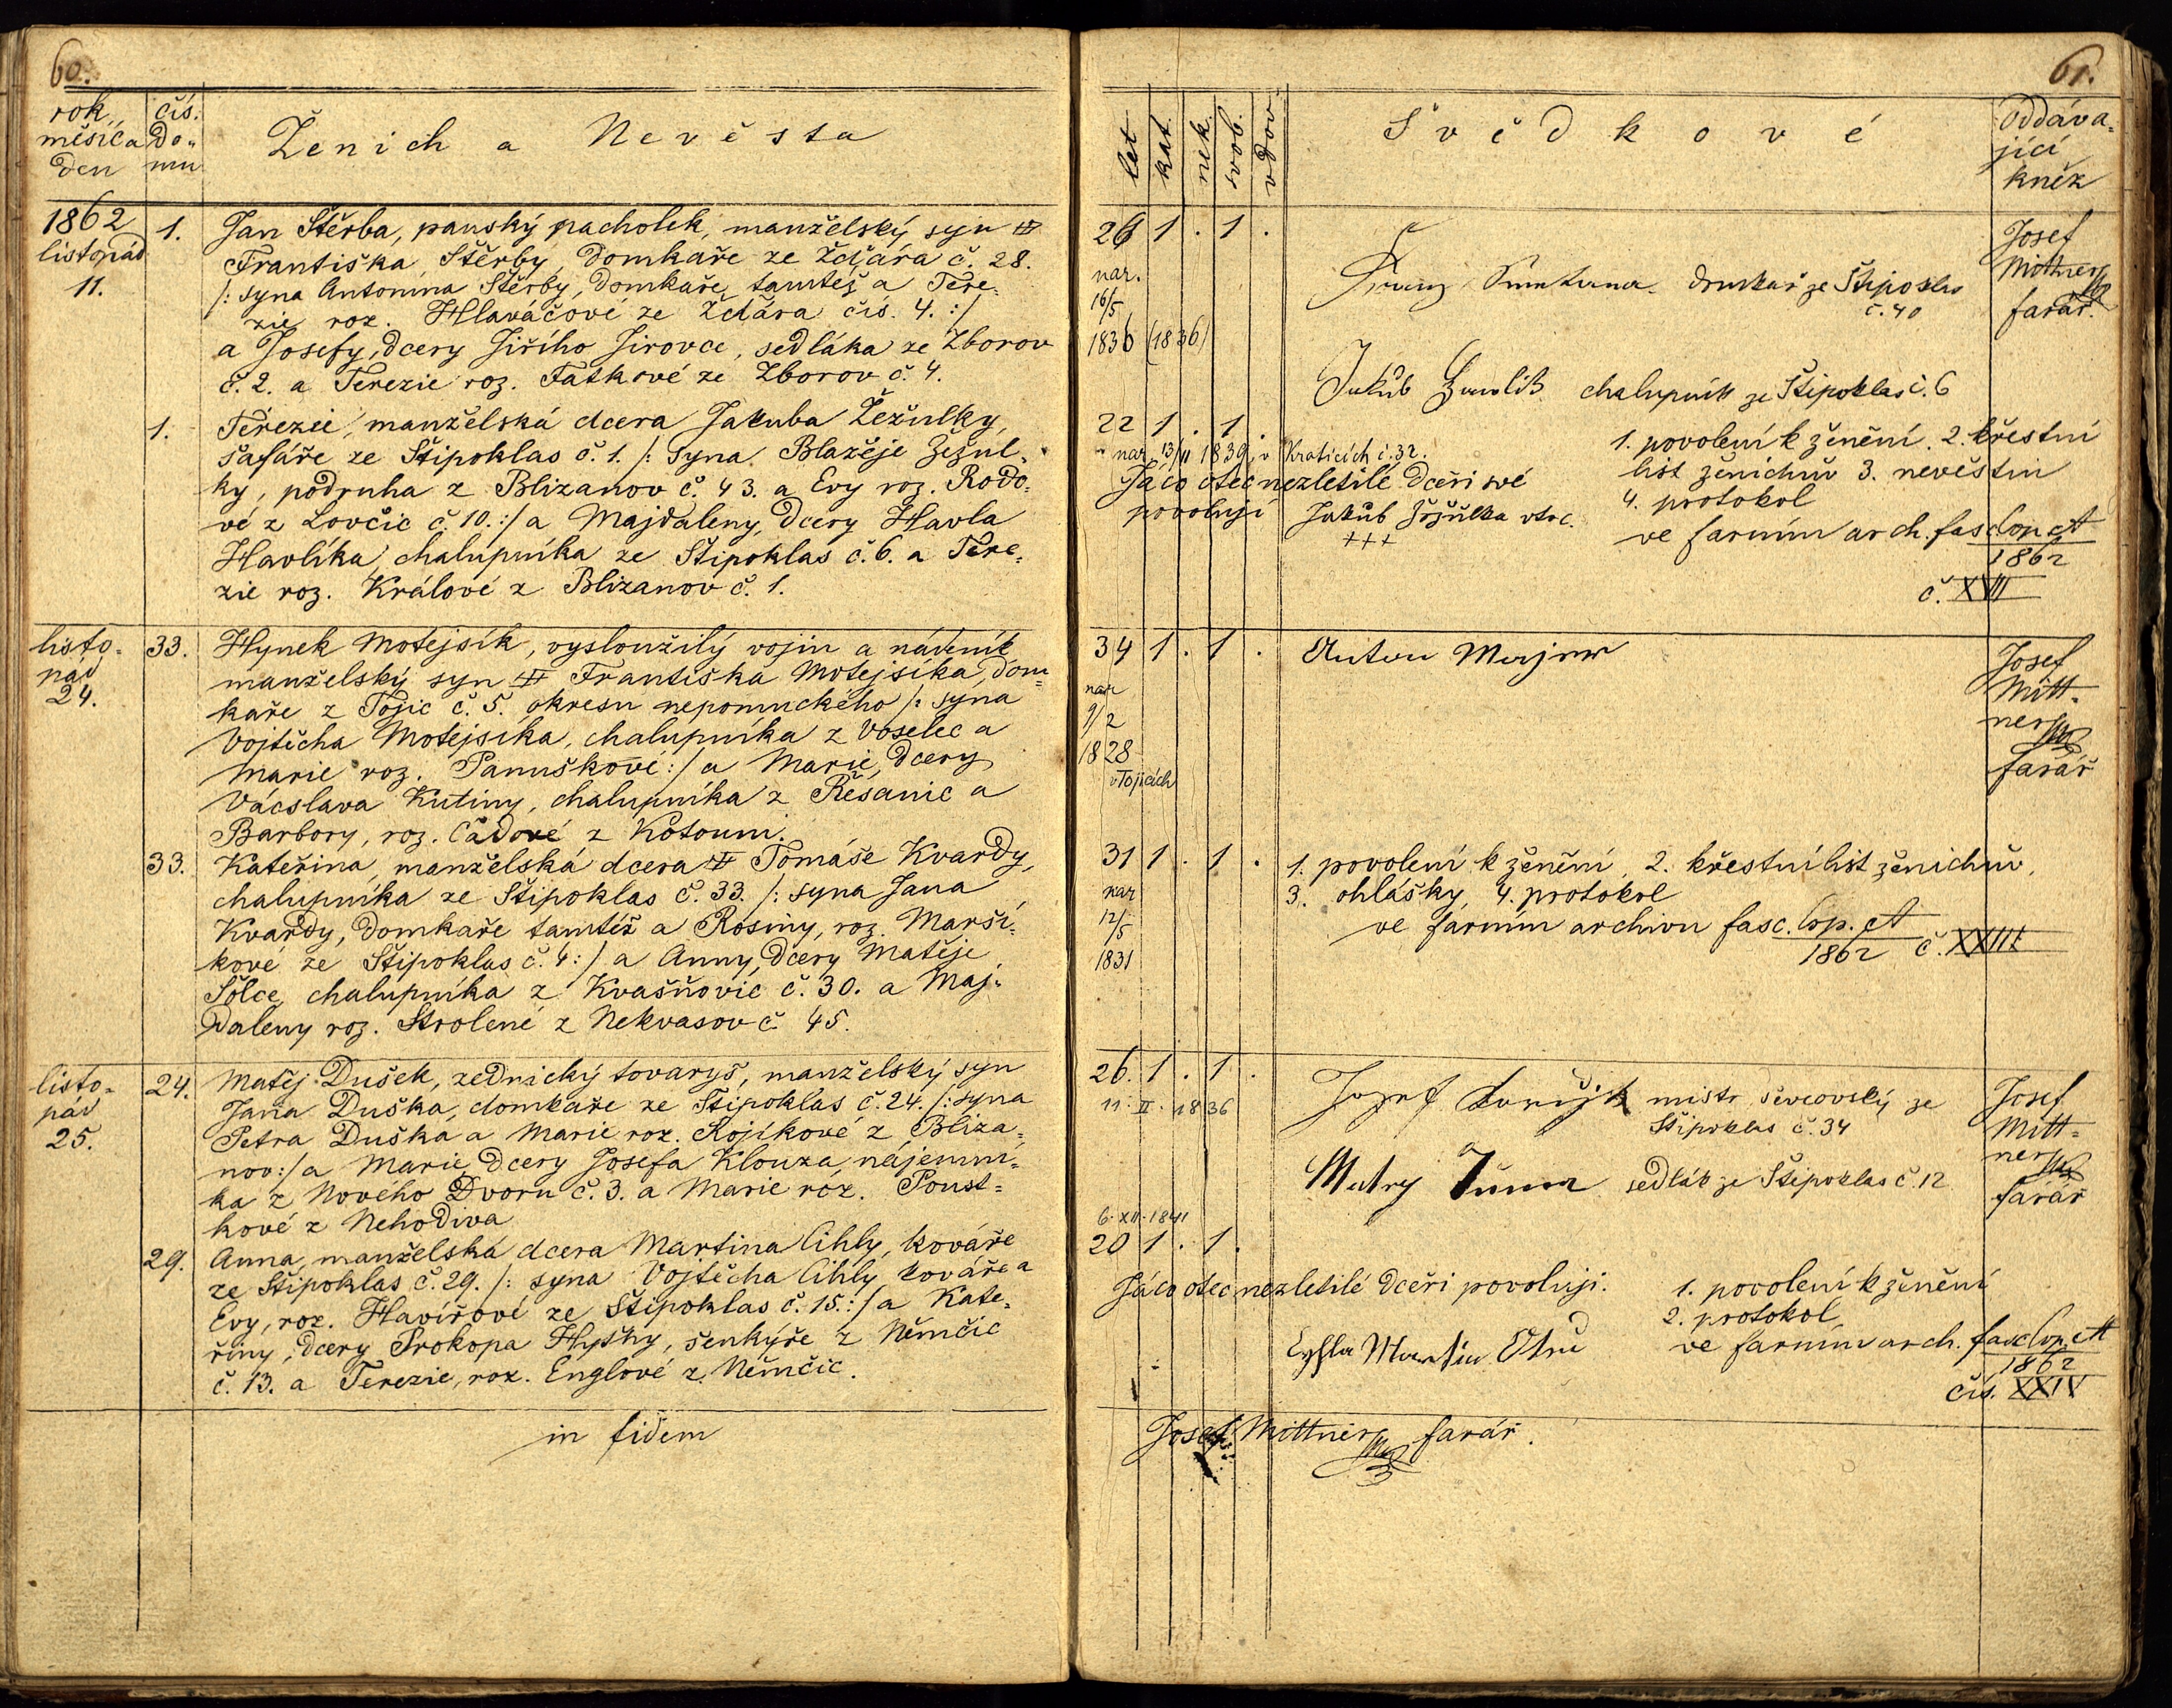 60.
rok, měsíc a den
čís. Do= mu
Ženich a Nevěsta
1862
listopad
11.
1.
Jan Štěrba, panský pacholek, manželský syn ⌗
Františka Štěrby, domkaře ze Žďára č. 28.
/: syna Antonína Štěrby, domkaře tamtéž a Tere-
zie roz. Hlaváčové ze Žďára čís. 4. :/
a Josefy, dcery Jiřího Jirovce, sedláka ze Zborov
č. 2. a Terezie roz. Faťkové ze Zborov č. 4.
1.
Terezie, manželská dcera Jakuba Žežulky,
šafáře ze Štipoklas č. 1. /: syna Blažěje Žežul-
ky, podruha z Blizanov č. 43. a Evy roz. Rodo-
vé z Lovčic č. 10. :/ a Majdaleny, dcery Havla
Havlíka, chalupníka ze Štipoklas č. 6. a Tere-
zie roz. Králové z Blizanov č. 1.
listo-
pád
24.
33.
Hynek Motejsík, vysloužilý vojín a nádeník
manželský syn ⌗ Františka Motejsíka, dom=
kaře z Tojic č. 5. okresu nepomuckého /: syna
Vojtěcha Motejsíka, chalupníka z Voselec a
Marie roz. Panuškové :/ a Marie, dcery
Vácslava Kutiny, chalupníka z Řesanic a
Barbory, roz. Čadové z Kotouni.
33.
Kateřina, manželská dcera ⌗ Tomáše Kvardy,
chalupníka ze Štipoklas č. 33. /: syna Jana
Kvardy, domkaře tamtéž a Rosiny, roz. Marší-
kové ze Štipoklas č. 4 :/ a Anny, dcery Matěje
Šolce, chalupníka z Kvášňovic č. 30. a Maj-
daleny roz. Strolené z Nekvasov č. 45.
listo-
pád
25.
24.
Matěj Dušek, zednický tovaryš, manželský syn
Jana Duška, domkaře ze Štipoklas č. 24. /: syna
Petra Duška a Marie roz. Kojíkové z Bliza-
nov :/ a Marie, dcery Josefa Klouza, nájemní-
ka z Nového Dvoru č. 3. a Marie roz. Poust=
kové z Nehodiva
29.
Anna, manželská dcera Martina Cihly, kováře
ze Štipoklas č. 29. /: syna Vojtěcha Cihly, kováře a
Evy, roz. Havířové ze Štipoklas č. 15. :/ a Kate-
řiny, dcery Prokopa Hyšky, šenkýře z Němčic
č. 13. a Terezie, roz. Englové z Němčic.
in fidem
61.
let kat. nek. svob. vdov.
Svědkové
Oddáva-
jící
kněz
26 1 . 1 .
nar.
16/5
1836 (1836)
Franz Smetana domkař ze Štipoklas
č. 40
Josef
Mittner
farář.
Jakub Hawlik chalupník ze Štipoklas č. 6
22 1 . 1 .
nar 13/11 1839, v Kraticích č. 32.
Jáco otec nezletilé dceři své
povoluji Jakub Žežulka otec.
+++
1. povolení k ženění. 2. křestní
list ženichův 3. nevěstin
4. protokol
ve farním arch. fasc Cop. A
1862
č. XVII
34 1 . 1 .
nar
9/2
1828
v Tojicích
Anton Majner
Josef
Mitt-
ner
farář
31 1 . 1 .
nar
12/5
1831
1. povolení k ženění, 2. křestní list ženichův,
3. ohlášky, 4. protokol
ve farním archivu fasc. Cop. A
1862 č. XXIII
26. 1 . 1 .
11. II. 1836
Jozef mistr ševcovský ze
Štipoklas č. 34
Josef
Mitt-
ner
farář
Matěj Tůma sedlák ze Štipoklas č. 12
6. XII. 1841
20 1 . 1 .
Jáco otec nezletilé dceři povoluji.
Cyhla Martin Otec
1. povolení k ženění
2. protokol
ve farním arch. fasc Cop. A
1862
čís. XXIV
Josef Mittner farář.